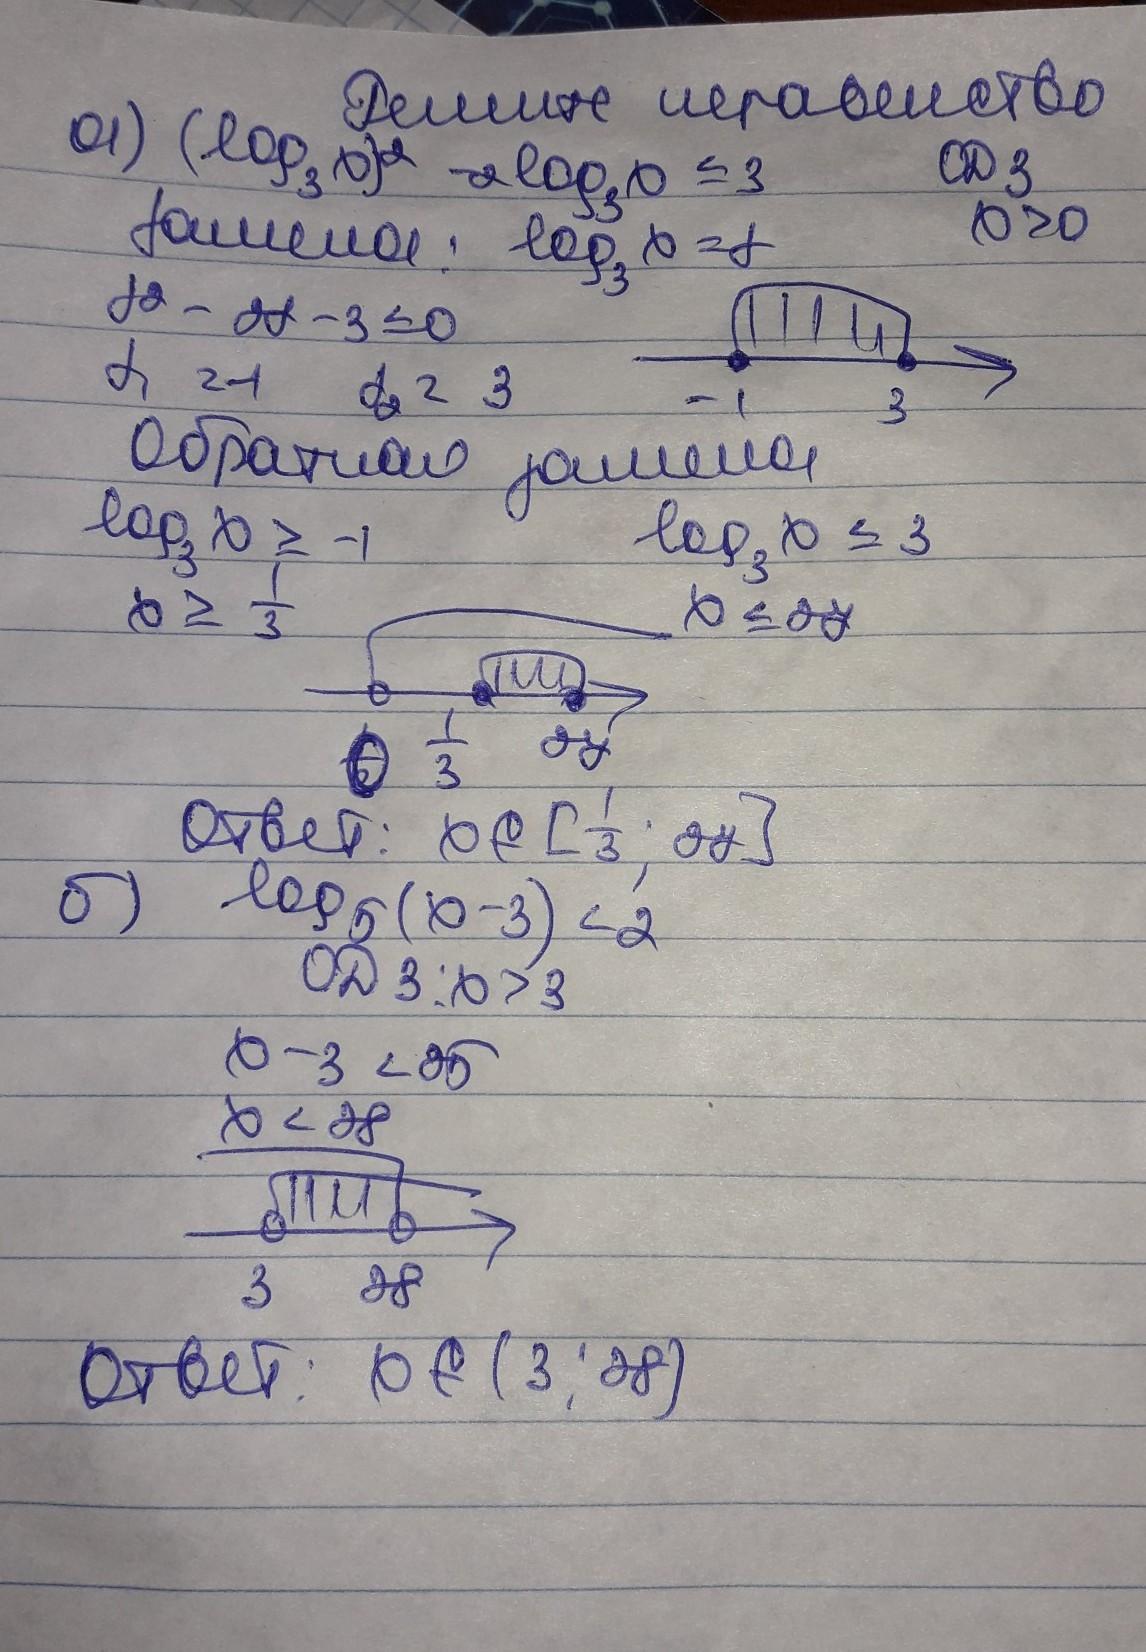 Решите неравенство
а) (log₃x)² -2log₃x ≤ 3 ОДЗ
x>0
Замена: log₃x = t
t² - 2t - 3 ≤ 0
t₁ = -1 t₂ = 3
-1 3
Обратная замена
log₃x ≥ -1 log₃x ≤ 3
x ≥ 1/3 x ≤ 27
0 1/3 27
Ответ: x ∈ [1/3; 27]
б) log₅(x-3) < 2
ОДЗ: x > 3
x - 3 < 25
x < 28
3 28
Ответ: x ∈ (3; 28)